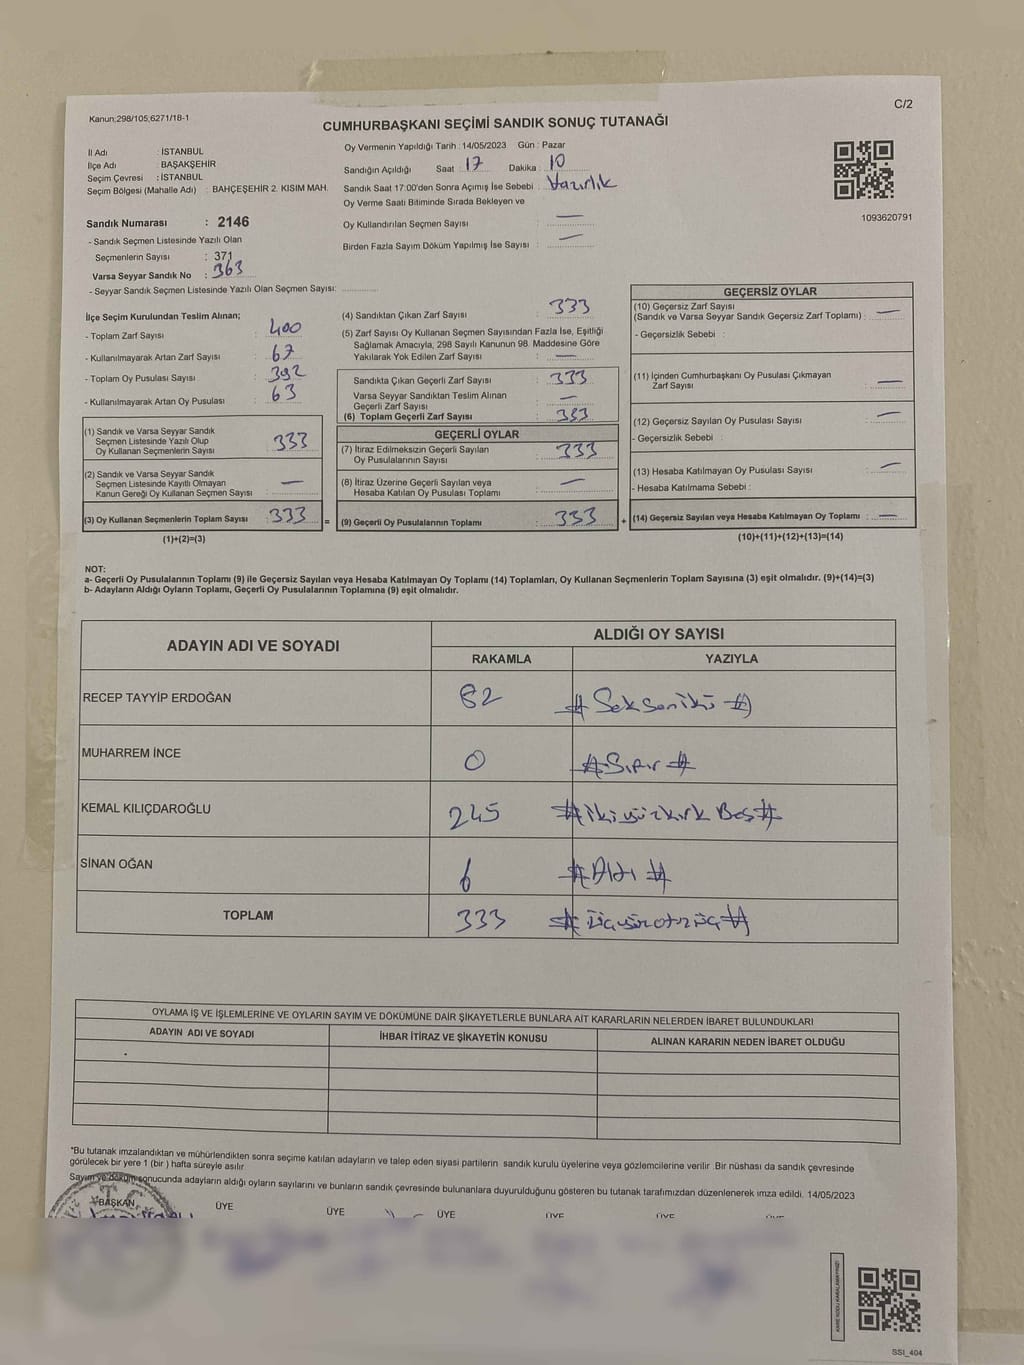 C/2
Kanun:298/105,6271/18-1
CUMHURBAŞKANI SEÇİMİ SANDIK SONUÇ TUTANAĞI
İl Adı : İSTANBUL
İlçe Adı : BAŞAKŞEHİR
Seçim Çevresi : İSTANBUL
Seçim Bölgesi (Mahalle Adı) : BAHÇEŞEHİR 2. KISIM MAH.
Sandık Numarası : 2146
- Sandık Seçmen Listesinde Yazılı Olan
Seçmenlerin Sayısı : 371
Varsa Seyyar Sandık No : 363
- Seyyar Sandık Seçmen Listesinde Yazılı Olan Seçmen Sayısı:
Oy Vermenin Yapıldığı Tarih : 14/05/2023 Gün : Pazar
Sandığın Açıldığı Saat : 17 Dakika : 10
Sandık Saat 17:00'den Sonra Açımış İse Sebebi : Hazırlık
Oy Verme Saati Bitiminde Sırada Bekleyen ve
Oy Kullandırılan Seçmen Sayısı : —
Birden Fazla Sayım Döküm Yapılmış İse Sayısı : —
1093620791
İlçe Seçim Kurulundan Teslim Alınan;
- Toplam Zarf Sayısı : 400
- Kullanılmayarak Artan Zarf Sayısı : 67
- Toplam Oy Pusulası Sayısı : 392
- Kullanılmayarak Artan Oy Pusulası : 63
(1) Sandık ve Varsa Seyyar Sandık
Seçmen Listesinde Yazılı Olup
Oy Kullanan Seçmenlerin Sayısı : 333
(2) Sandık ve Varsa Seyyar Sandık
Seçmen Listesinde Kayıtlı Olmayan
Kanun Gereği Oy Kullanan Seçmen Sayısı : —
(3) Oy Kullanan Seçmenlerin Toplam Sayısı : 333
(1)+(2)=(3)
(4) Sandıktan Çıkan Zarf Sayısı : 333
(5) Zarf Sayısı Oy Kullanan Seçmen Sayısından Fazla İse, Eşitliği
Sağlamak Amacıyla, 298 Sayılı Kanunun 98. Maddesine Göre
Yakılarak Yok Edilen Zarf Sayısı : —
Sandıkta Çıkan Geçerli Zarf Sayısı : 333
Varsa Seyyar Sandıktan Teslim Alınan
Geçerli Zarf Sayısı : —
(6) Toplam Geçerli Zarf Sayısı : 333
GEÇERLİ OYLAR
(7) İtiraz Edilmeksizin Geçerli Sayılan
Oy Pusulalarının Sayısı : 333
(8) İtiraz Üzerine Geçerli Sayılan veya
Hesaba Katılan Oy Pusulası Toplamı : —
= (9) Geçerli Oy Pusulalarının Toplamı : 333 +
GEÇERSİZ OYLAR
(10) Geçersiz Zarf Sayısı
(Sandık ve Varsa Seyyar Sandık Geçersiz Zarf Toplamı) : —
- Geçersizlik Sebebi :
(11) İçinden Cumhurbaşkanı Oy Pusulası Çıkmayan
Zarf Sayısı : —
(12) Geçersiz Sayılan Oy Pusulası Sayısı : —
- Geçersizlik Sebebi :
(13) Hesaba Katılmayan Oy Pusulası Sayısı : —
- Hesaba Katılmama Sebebi :
(14) Geçersiz Sayılan veya Hesaba Katılmayan Oy Toplamı : —
(10)+(11)+(12)+(13)=(14)
NOT:
a- Geçerli Oy Pusulalarının Toplamı (9) ile Geçersiz Sayılan veya Hesaba Katılmayan Oy Toplamı (14) Toplamları, Oy Kullanan Seçmenlerin Toplam Sayısına (3) eşit olmalıdır. (9)+(14)=(3)
b- Adayların Aldığı Oyların Toplamı, Geçerli Oy Pusulalarının Toplamına (9) eşit olmalıdır.
ADAYIN ADI VE SOYADI
ALDIĞI OY SAYISI
RAKAMLA YAZIYLA
RECEP TAYYİP ERDOĞAN 82 # Seksen iki #
MUHARREM İNCE 0 # Sıfır #
KEMAL KILIÇDAROĞLU 245 # ikiyüzkırk Beş #
SİNAN OĞAN 6 # Altı #
TOPLAM 333 # üçyüzotuzüç #
OYLAMA İŞ VE İŞLEMLERİNE VE OYLARIN SAYIM VE DÖKÜMÜNE DAİR ŞİKAYETLERLE BUNLARA AİT KARARLARIN NELERDEN İBARET BULUNDUKLARI
ADAYIN ADI VE SOYADI İHBAR İTİRAZ VE ŞİKAYETİN KONUSU ALINAN KARARIN NEDEN İBARET OLDUĞU
*Bu tutanak imzalandıktan ve mühürlendikten sonra seçime katılan adayların ve talep eden siyasi partilerin sandık kurulu üyelerine veya gözlemcilerine verilir. Bir nüshası da sandık çevresinde
görülecek bir yere 1 (bir ) hafta süreyle asılır.
Sayım ve döküm sonucunda adayların aldığı oyların sayılarını ve bunların sandık çevresinde bulunanlara duyurulduğunu gösteren bu tutanak tarafımızdan düzenlenerek imza edildi. 14/05/2023
BAŞKAN ÜYE ÜYE ÜYE ÜYE ÜYE ÜYE
T.C.
KARE KODU KARALAMAYINIZ!
SSI_404